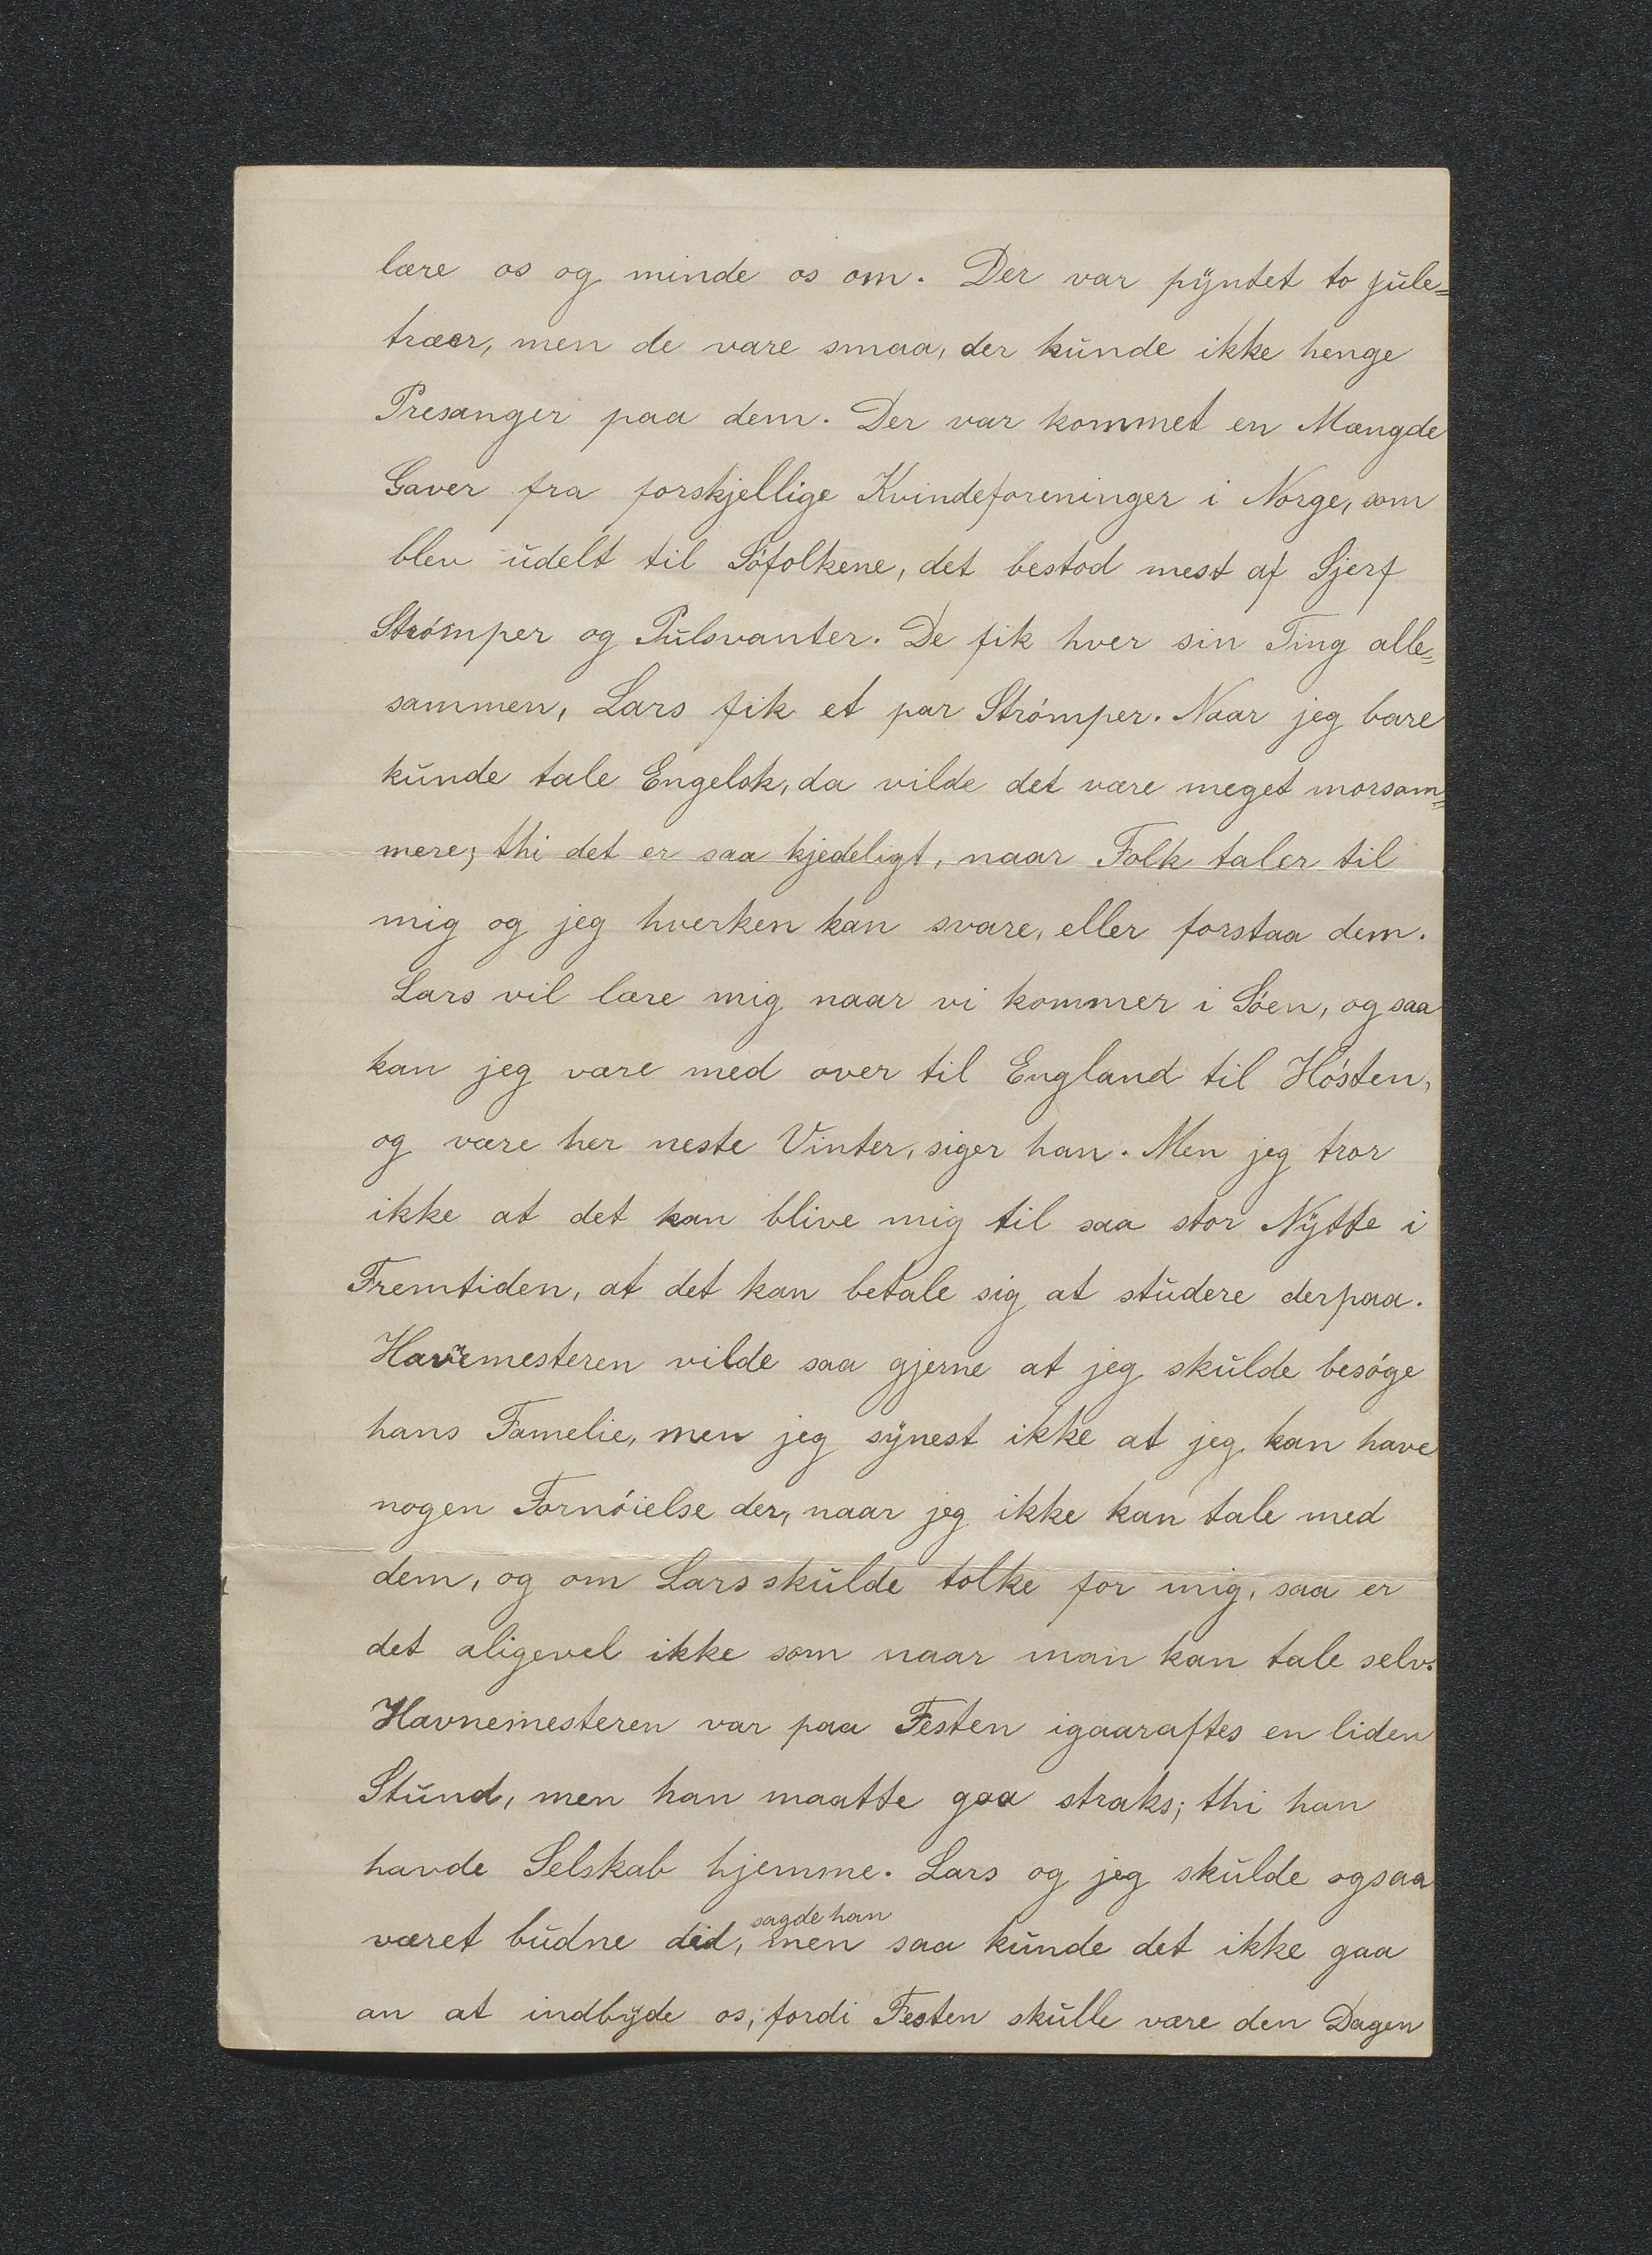 lære os og minde os om. Der var pyntet to jule=
træer, men de vare smaa, der kunde ikke henge
Presanger paa dem. Der var kommet en Mængde
Gaver fra forskjellige Kvindeforeninger i Norge, som
blev udelt til Söfolkene, det bestod mest af Sjerf
Strömper og Pulsvanter. De fik hver sin Ting alle=
sammen, Lars fik et par Strömper. Naar jeg bare
kunde tale Engelsk, da vilde det være meget morsom=
mere; thi det er saa kjedeligt, naar Folk taler til
mig og jeg hverken kan svare, eller forstaa dem.
Lars vil lære mig naar vi kommer i Söen, og saa
kan jeg være med over til England til Hösten,
og være her neste Vinter, siger han. Men jeg tror
ikke at det kan blive mig til saa stor Nytte i
Fremtiden, at det kan betale sig at studere derpaa.
Havnemesteren vilde saa gjerne at jeg skulde besöge
hans Famelie, men jeg synest ikke at jeg kan have
nogen Fornöielse der, naar jeg ikke kan tale med
dem, og om Lars skulde tolke for mig, saa er
det aligevel ikke som naar man kan tale selv.
Havnemesteren var paa Festen igaaraftes en liden
Stund, men han maatte gaa straks; thi han
havde Selskab hjemme. Lars og jeg skulde ogsaa
sagde han
været budne did, men saa kunde det ikke gaa
an at indbyde os, fordi Festen skulle være den Dagen